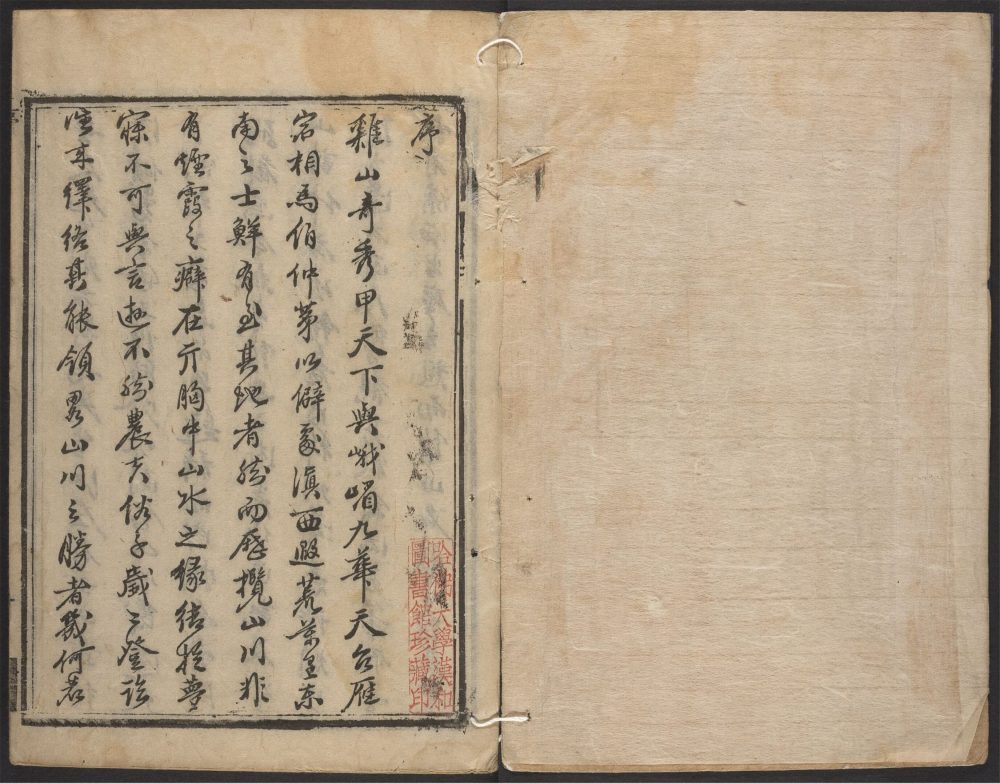 序
雞山奇秀甲天下與峨嵋九華天台雁
宕相爲伯仲第以僻處滇西遐荒萬里東
南之士鮮有至其地者然而歷攬山川非
有煙霞之癖在方胸中山水之緣結於夢
寐不可與言遊不然農夫俗子歲歲登臨
往來繹絡其能領畧山川之勝者幾何若
哈佛大學漢和
圖書館珍藏印